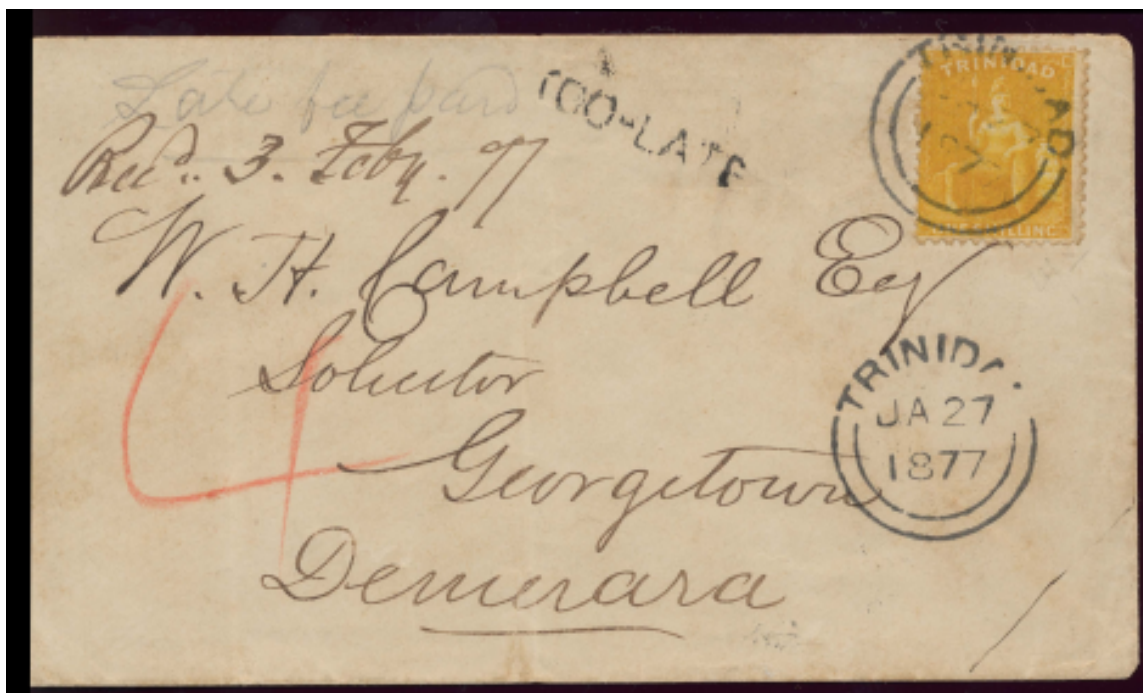 Late fee paid
TOO-LATE
TRINIDAD
TRINIDAD
ONE SHILLING
Recd. 3. Feby. 77
W. H. Campbell Esq
Solicitor
Georgetown
Demerara
4
TRINIDAD
JA 27
1877